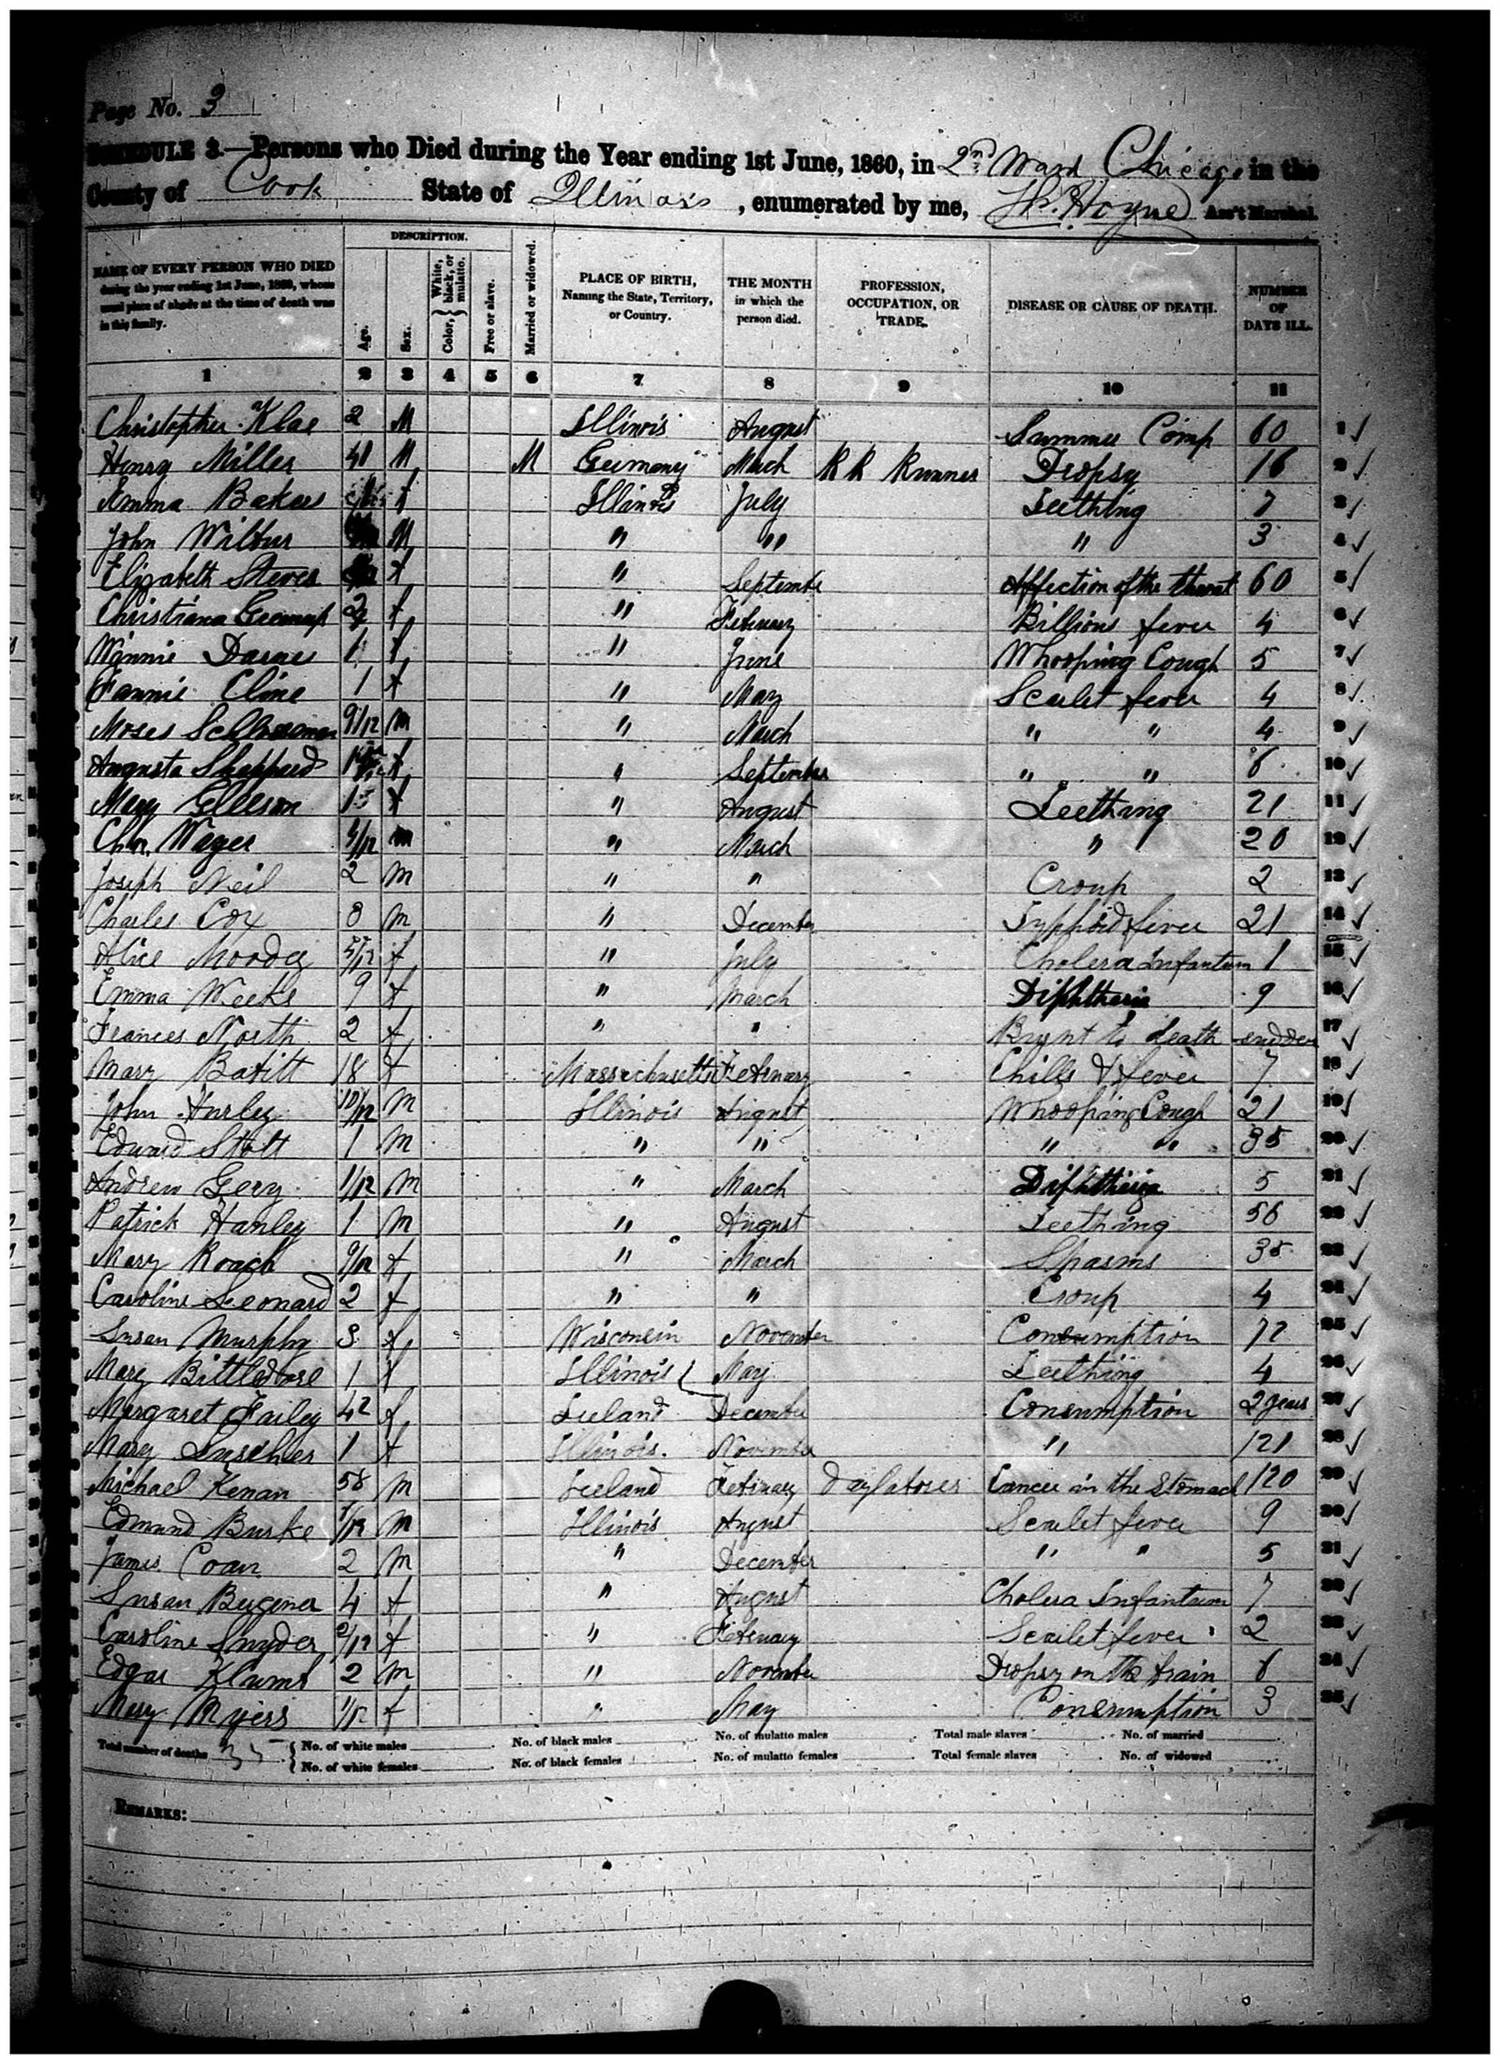 Page No. 3
SCHEDULE 3.—Persons who Died during the Year ending 1st June, 1860, in 2nd Ward Chicago in the
County of Cook State of Illinois, enumerated by me, Hoyne Ass't Marshal.
NAME OF EVERY PERSON WHO DIED during the year ending 1st June, 1860, whose usual place of abode at the time of death was in this family.
DESCRIPTION.
Age. Sex. Color, White, black, or mulatto. Free or slave. Married or widowed.
PLACE OF BIRTH, Naming the State, Territory, or Country.
THE MONTH in which the person died.
PROFESSION, OCCUPATION, OR TRADE.
DISEASE OR CAUSE OF DEATH.
NUMBER OF DAYS ILL.
1 2 3 4 5 6 7 8 9 10 11
Christopher Klae 2 M Illinois August Summer Comp 60 1
Henry Miller 41 M M Germany March R R Runner Dropsy 16 2
Emma Baker f Illinois July Teething 7 3
John Wilbur M " " " 3 4
Elizabeth Steves f " Septembe Affection of the throat 60 5
Christiana f " February Billious fever 4 6
Winnie Darnes 1 f " June Whooping Cough 5 7
Fannie Cline 1 f " May Scarlet fever 4 8
Moses 9/12 m " March " " 4 9
Augusta Sheppard f " September " " 8 10
Mary Gleeson f " August Teething 21 11
Chs. Wager 4/12 m " March " 20 12
Joseph Neil 2 m " " Croup 2 13
Charles Cox 8 m " December Typhoid fever 21 14
Alice Moody f " July Cholera Infantum 1 15
Emma Weeks 9 f " March Diphtheria 9 16
Frances North 2 f " " Burnt to death sudden 17
Mary Batitt 18 f Massachusetts February Chills & fever 7 18
John Hurley 10/12 m Illinois August Whooping Cough 21 19
Edward Stott 1 m " " " " 35 20
Andrew Gery 1/12 m " March Diphtheria 5 21
Patrick Hanley 1 m " August Teething 56 22
Mary Roach 9/12 f " March Spasms 35 23
Caroline Leonard 2 f " " Croup 4 24
Susan Murphy f Wisconsin November Consumption 72 25
Mary 1 f Illinois May Teething 4 26
Margaret Failey 42 f Ireland December Consumption 2 years 27
Mary 1 f Illinois. November " 121 28
Michael Kenan 58 m Ireland February Daylaborer Cancer in the Stomach 120 29
Edmund Burke m Illinois August Scarlet fever 9 30
James Coan 2 m " December " " 5 31
Susan 4 f " August Cholera Infantum 7 32
Caroline Snyder f " February Scarlet fever 2 33
Edgar Klums 2 m " November Dropsy on the brain 8 34
Mary Myers f " May Consumption 3 35
Total number of deaths 35 No. of white males No. of black males No. of mulatto males Total male slaves No. of married
No. of white females No. of black females No. of mulatto females Total female slaves No. of widowed
REMARKS: